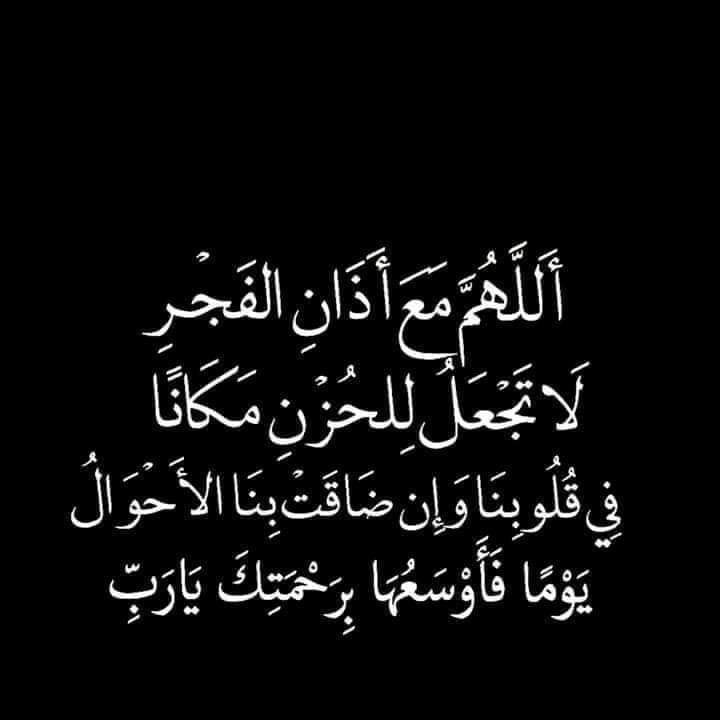 أَللَّهُمَّ مَعَ أَذَانِ الفَجْرِ
لَا تَجْعَلُ لِلحُزْنِ مَكَانًا
فِي قُلُوبِنَا وَإِن ضَاقَتْ بِنَا الأَحْوَالُ
يَوْمًا فَأَوْسَعُهَا بِرَحْمَتِكَ يَارَبِّ